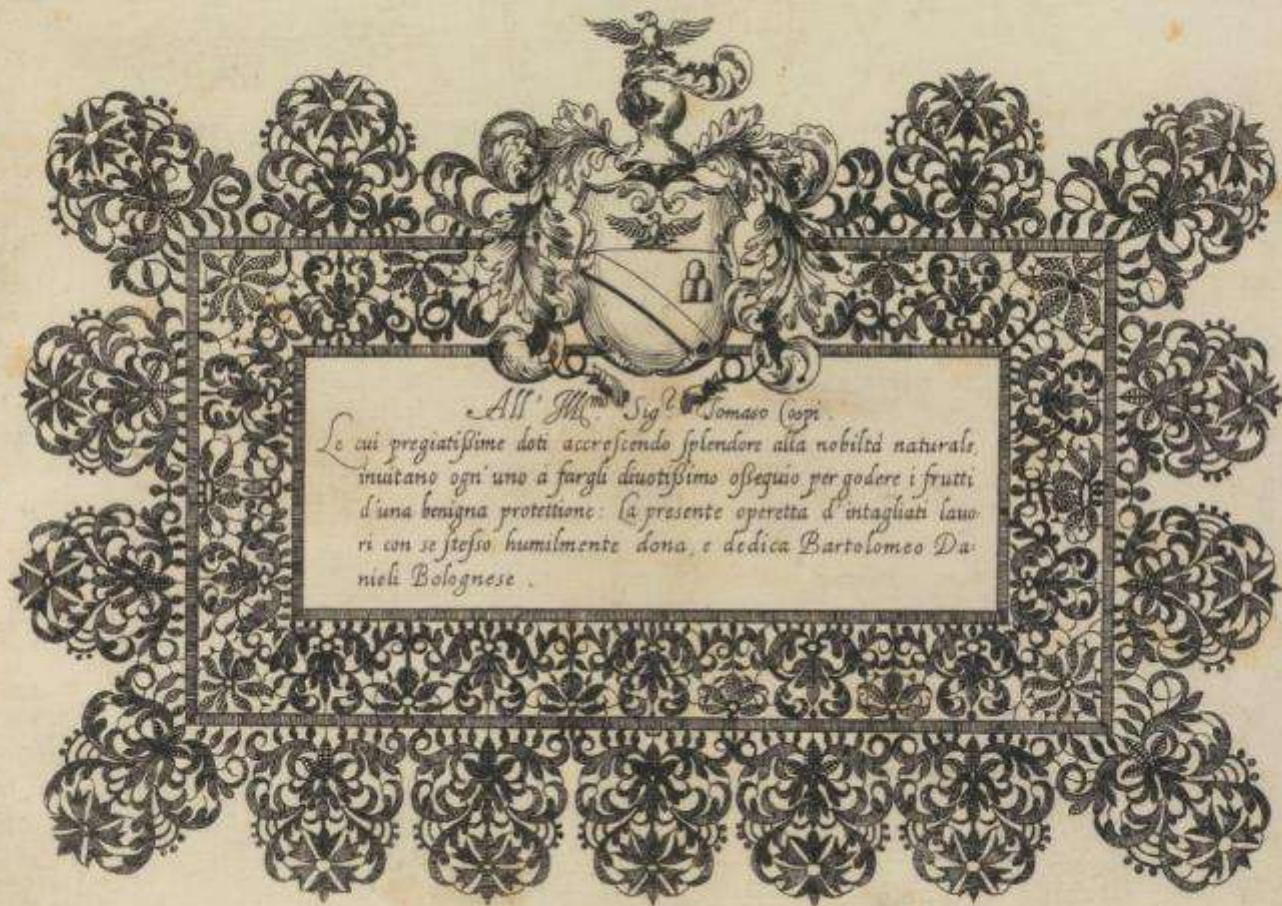 All' Ill.mo Sig.r Tomaso Cospi.
Le cui pregiatißime doti accreſcendo ſplendore alla nobiltà naturale,
inuitano ogn'uno a fargli diuotißimo oſsequio per godere i frutti
d'una benigna protettione: la presente operetta d'intagliati lauo-
ri con se ſteſso humilmente dona, e dedica Bartolomeo Da-
nieli Bolognese.